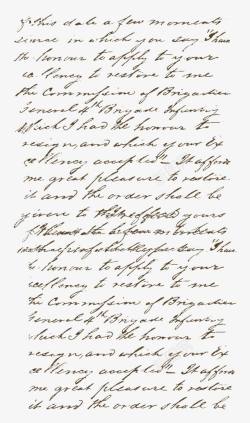 of this date a few moments
since in which you say "I have
the honour to apply to your
ex=llency to restore to me
the Commission of Brigadier
General 4th Brigade Infantry
which I had the honour to
resign, and which your Ex
cellency accepted" - It affords
me great pleasure to restore
it and the order shall be
given to yours
say "I have
honour to apply to your
llency to restore to me
the Commission of Brigadier
General 4th Brigade Infantry
which I had the honour to
resign, and which your Ex
cellency accepted" - It affords
me great pleasure to restore
it and the order shall be